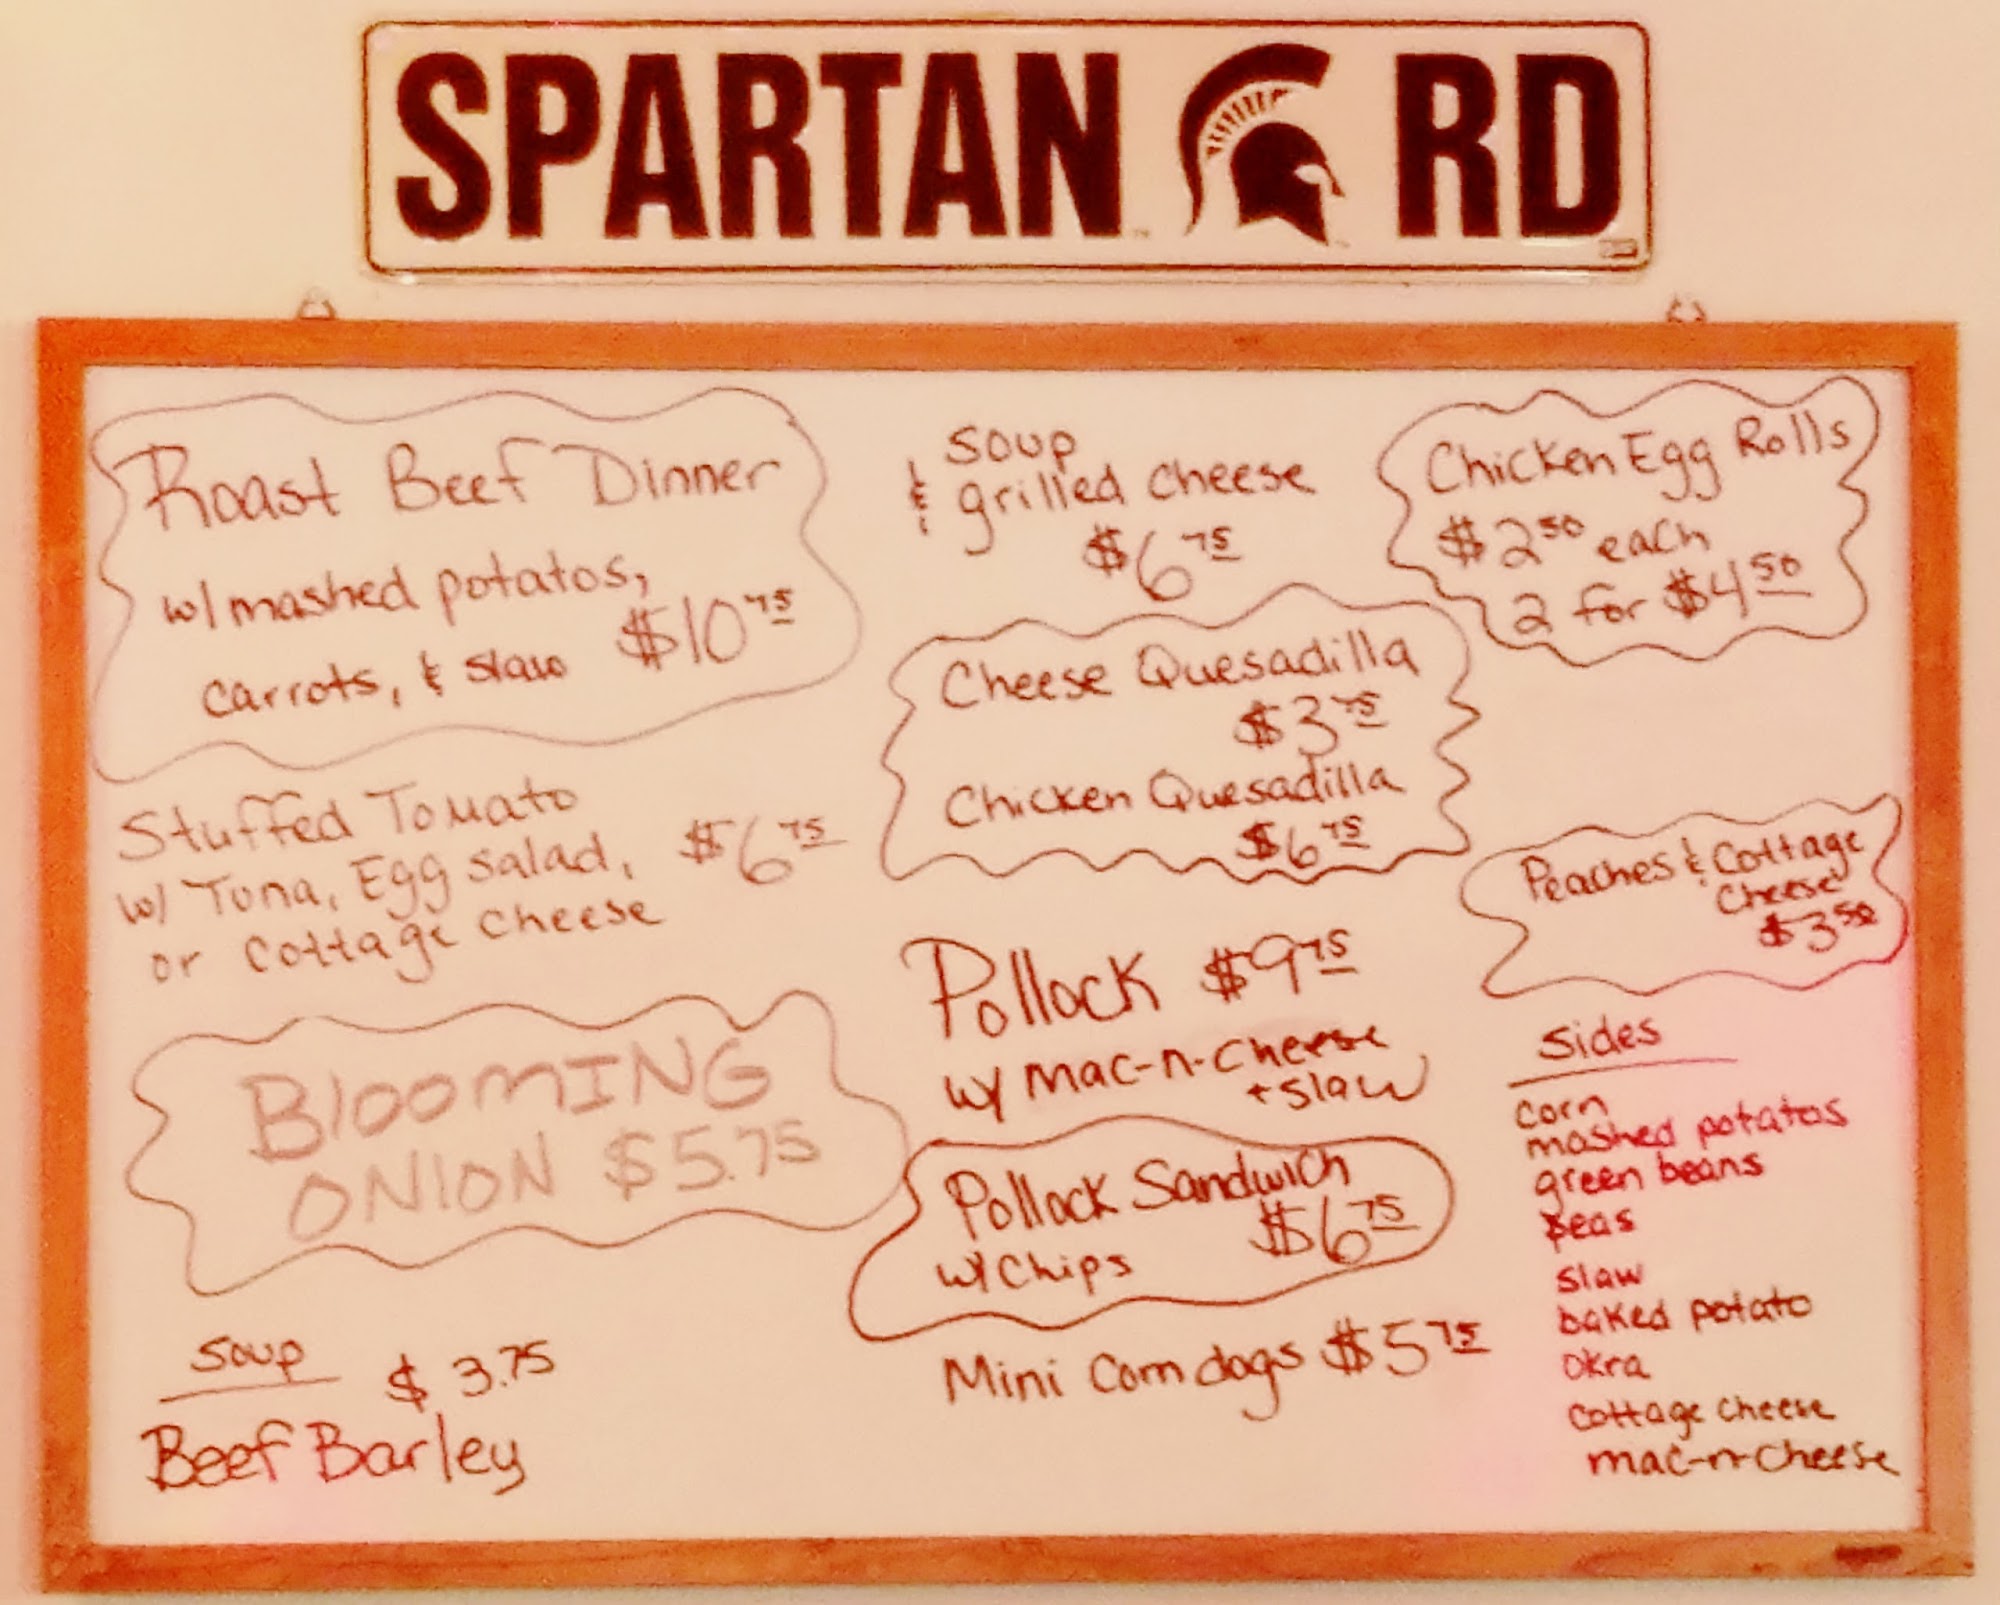 SPARTAN RD
Roast Beef Dinner
w/ mashed potatos,
carrots, & slaw $10 75
Stuffed Tomato
w/ Tuna, Egg salad, $6 75
or cottage cheese
BloomING
ONION $5.75
Soup $3.75
Beef Barley
Soup
& grilled cheese
$6 75
Cheese Quesadilla
$3 75
Chicken Quesadilla
$6 75
Pollock $9 75
w/ mac-n-cheese
+ slaw
Pollock Sandwich
w/ chips $6 75
Mini Corn dogs $5 75
Chicken Egg Rolls
$2 50 each
2 for $4 50
Peaches & Cottage
Cheese
$3 50
Sides
corn
mashed potatos
green beans
peas
slaw
baked potato
okra
cottage cheese
mac-n-cheese